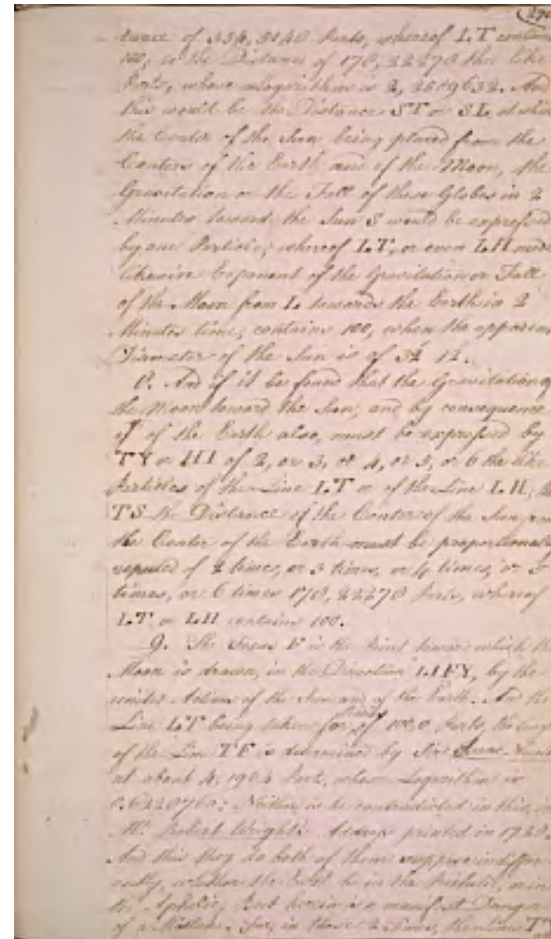 tance of 354, 5140 Parts, whereof LT contain
100, to the Distance of 170, 22270 the like
Parts, whose Logarithm is 2, 2689632. And
this would be the Distance ST or SL, at which
the Center of the Sun being placed from the
Centers of the Earth and of the Moon, the
Gravitation or the Fall of these Globes in 2
Minutes toward the Sun S would be expressed
by one Particle; whereof LT, or even LH
likewise Exponent of the Gravitation or Fall
of the Moon from L towards the Earth in 2
Minutes time, contains 100, when the apparent
Diameter of the Sun is of
And if it be found that the Gravitation of
the Moon toward the Sun, and by consequence
of the Earth also, must be expressed by
TY or HI of 2, or 3, or 4, or 5, or 6 the like
Particles of the Line LT or of the Line LH;
TS the Distance of the Center of the Sun from
the Center of the Earth must be proportionally
of 2 times, or 3 times, or 4 times, or 5
times, or 6 times 170, 22270 Parts, whereof
LT or LH contains 100.
9. The Focus F is the Point toward which the
Moon is drawn, in the Direction LIFY, by the
united Action of the Sun and of the Earth. And the
Line LT being taken for of 100,0 Parts, the
of the Line TF is determined by Sir Isaac
at about 4, 1904 Part, whose Logarithm is
0.6220760; Neither is he contradicted in this, in
Mr. Robert Wright's printed in 1728.
And this they do both of them suppose indiffe-
rently, whether the Earth be in the Perihelie, or in
the Aphelie; But herein is a manifest Danger
of a Mistake. For, in those 2 the Line T